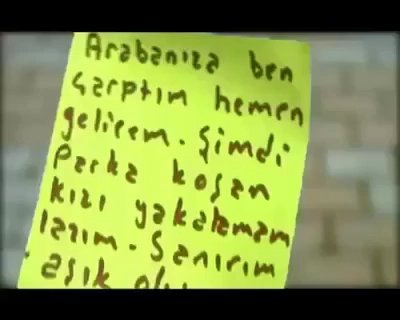 Arabanıza ben
çarptım hemen
gelicem. Şimdi
Parka koşan
kızı yakalamam
lazım. Sanırım
aşık